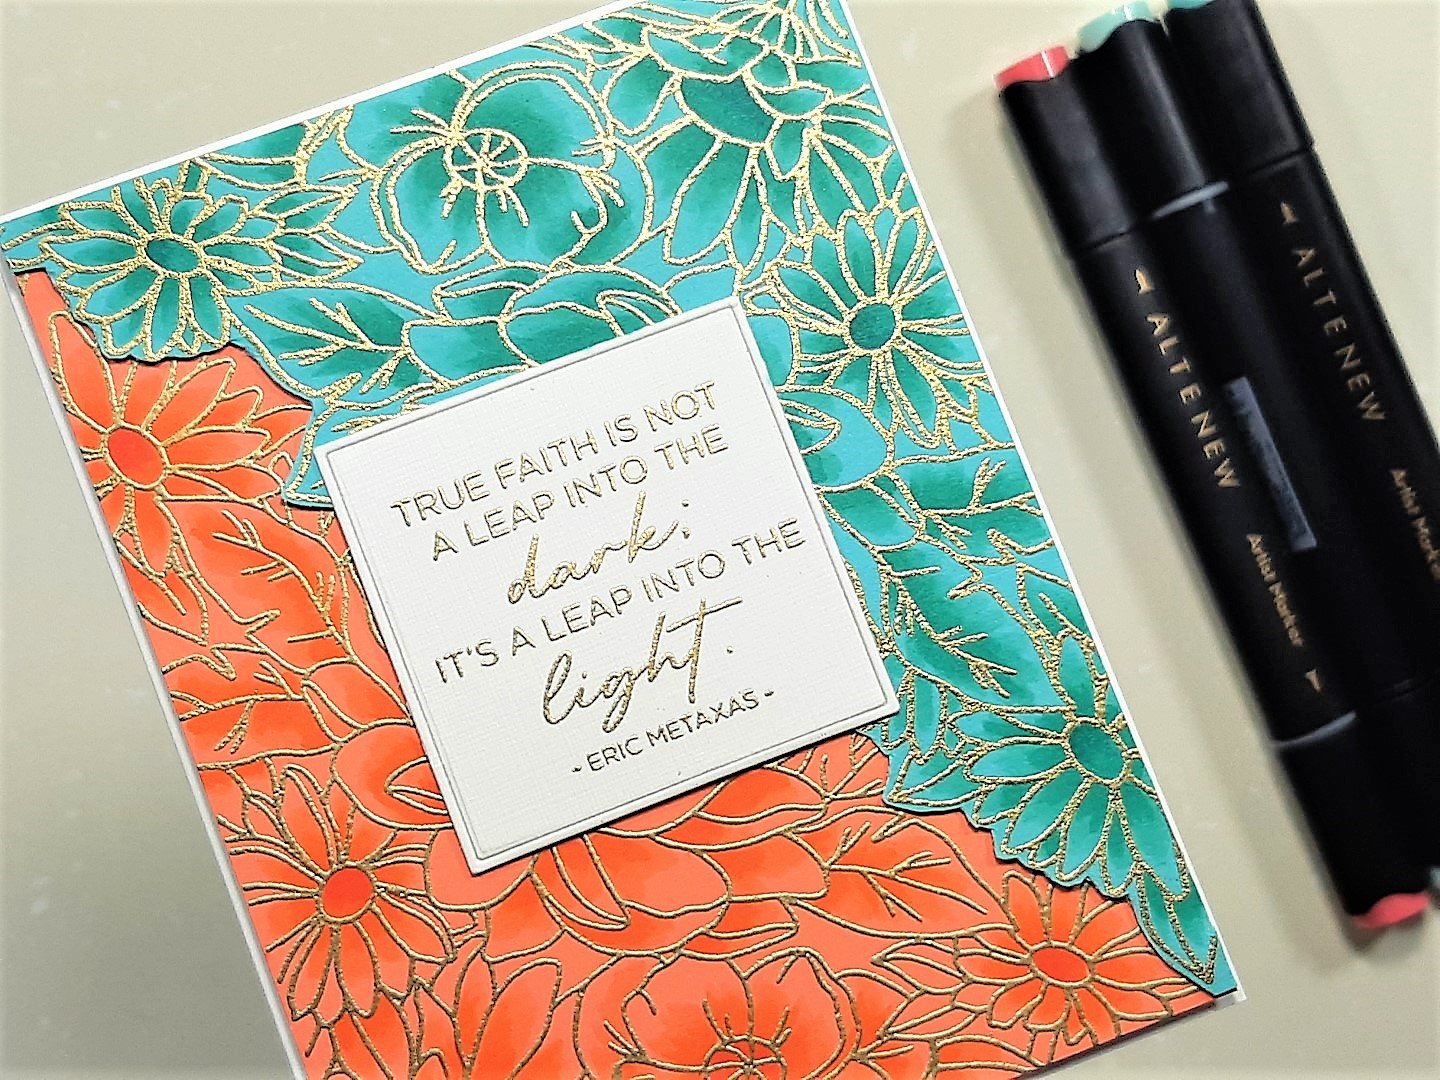 TRUE FAITH IS NOT
A LEAP INTO THE
dark;
IT'S A LEAP INTO THE
light.
- ERIC METAXAS -
ALTENEW
Artist Marker
ALTENEW
Artist Marker